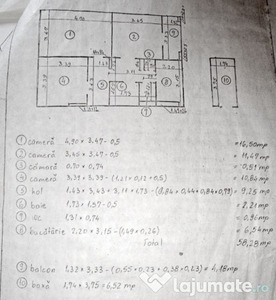 4,90
3,45
1
2
9
3
3.39
4
5
6
8
7
10
① cameră 4,90 x 3.47 - 0,5 = 16,50 mp
② cameră 3,45 x 3.47 - 0.5 = 11,47 mp
③ cămară 0,70 x 0,74 = 0,51 mp
④ cameră 3,39 x 3.39 - (1,21 x 0,12 + 0,5) = 10,86 mp
⑤ hol 1,43 x 3,43 x 3,11 x 1,73 - (0,84 x 0,44 + 0,84 x 0,99) = 9,25 mp
⑥ baie 1,73 x 1,57 - 0,5 = 2,21 mp
⑦ wc 1,31 x 0,74 = 0,96 mp
⑧ bucătărie 2.20 x 3,15 - (1,49 x 0,26) = 6,54 mp
Total 58,28 mp
⑨ balcon 1,32 x 3,33 - (0,55 x 0,23 + 0,38 x 0,23) = 4,18 mp
⑩ boxă 1,74 x 3,75 = 6,52 mp
lajumate.ro